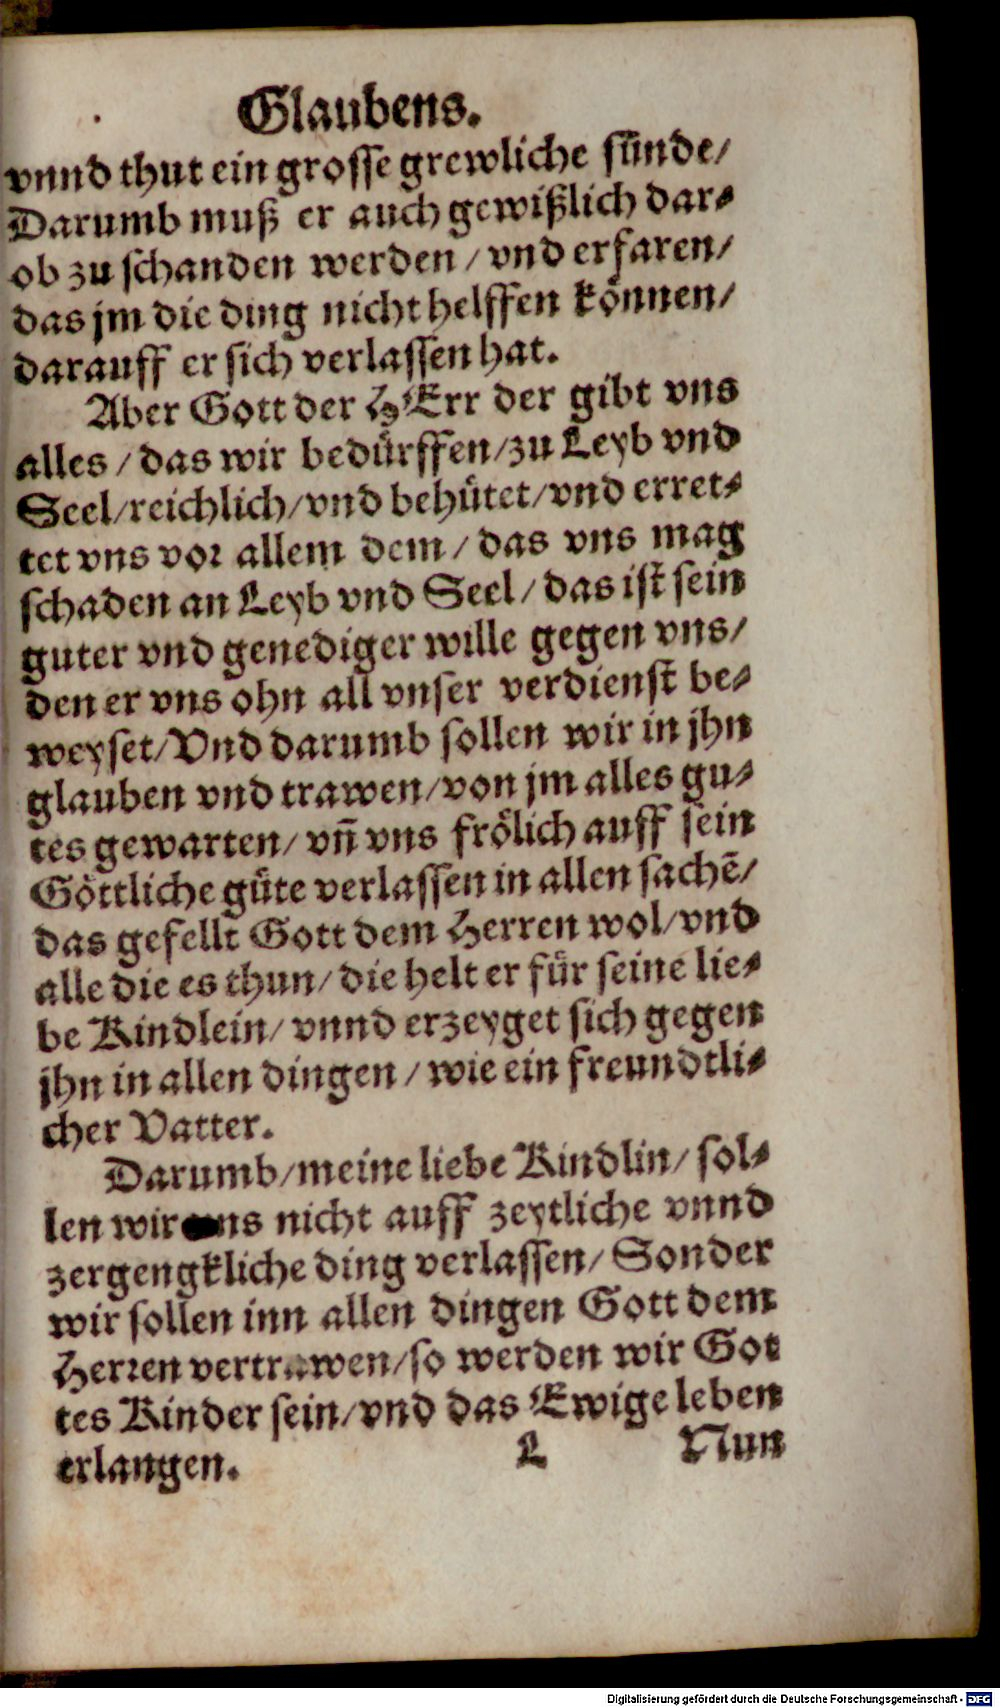 Glaubens.
vnnd thut ein grosse grewliche sünde/
Darumb muß er auch gewißlich dar⸗
ob zu schanden werden / vnd erfaren/
das jm die ding nicht helffen können/
darauff er sich verlassen hat.
Aber Gott der HErr der gibt vns
alles / das wir bedürffen/zu Leyb vnd
Seel/reichlich/vnd behütet/vnd erret⸗
tet vns vor allem dem / das vns mag
schaden an Leyb vnd Seel / das ist sein
guter vnd genediger wille gegen vns/
den er vns ohn all vnser verdienst be⸗
weyset/Vnd darumb sollen wir in jhn
glauben vnd trawen/von jm alles gu⸗
tes gewarten/ vñ vns frölich auff sein
Göttliche güte verlassen in allen sachẽ/
das gefellt Gott dem Herren wol/vnd
alle die es thun/ die helt er für seine lie⸗
be Kindlein/ vnnd erzeyget sich gegen
jhn in allen dingen / wie ein freundtli⸗
cher Vatter.
Darumb/meine liebe Kindlin/ sol⸗
len wir vns nicht auff zeytliche vnnd
zergengkliche ding verlassen/ Sonder
wir sollen inn allen dingen Gott dem
Herren vertrawen/so werden wir Got
tes Kinder sein/vnd das Ewige leben
erlangen. L Nun
Digitalisierung gefördert durch die Deutsche Forschungsgemeinschaft - DFG